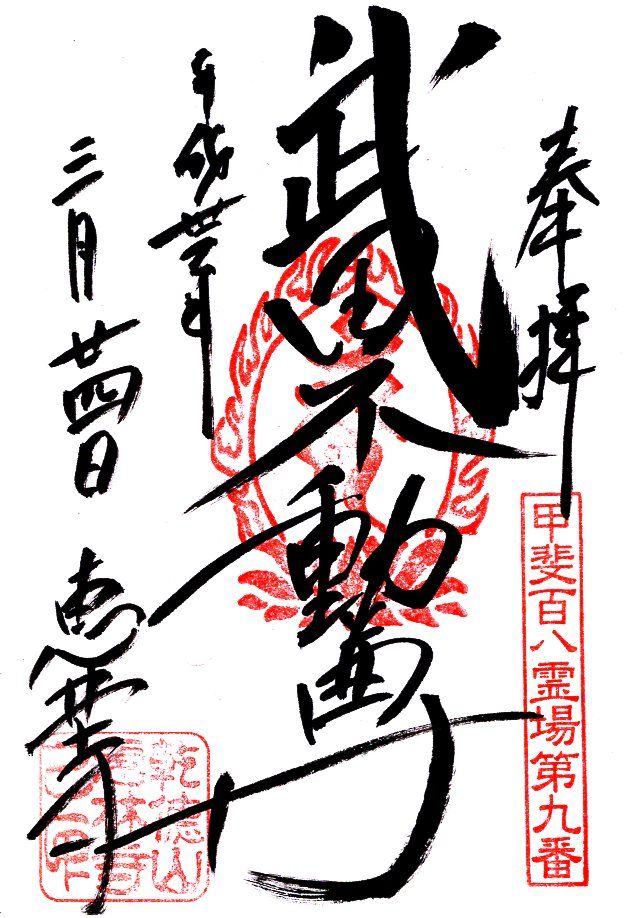 奉拝
甲斐百八霊場第九番
武田不動尊
平成
三月廿四日
恵林寺
乾徳山